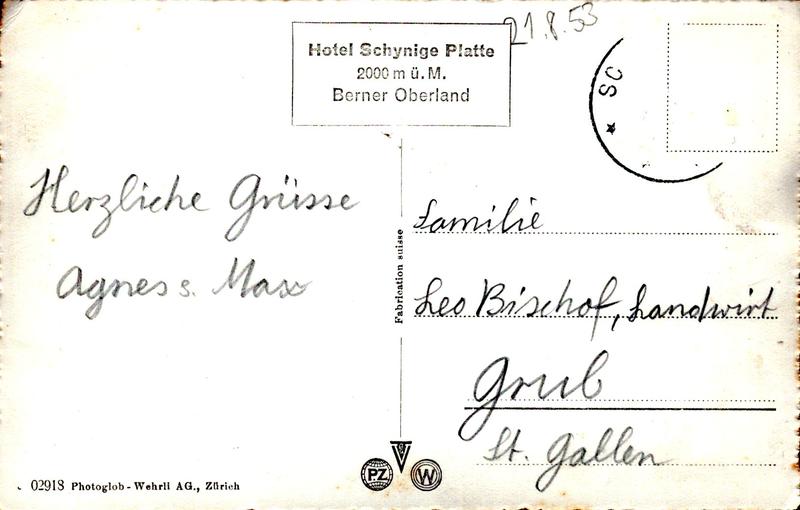 21.8.53
Hotel Schynige Platte
2000 m ü. M.
Berner Oberland
* SC
Herzliche Grüsse
Agnes s. Max
Familie
Leo Bischof, Landwirt
Grub
St. Gallen
Fabrication suisse
PZ W
02918 Photoglob-Wehrli AG., Zürich